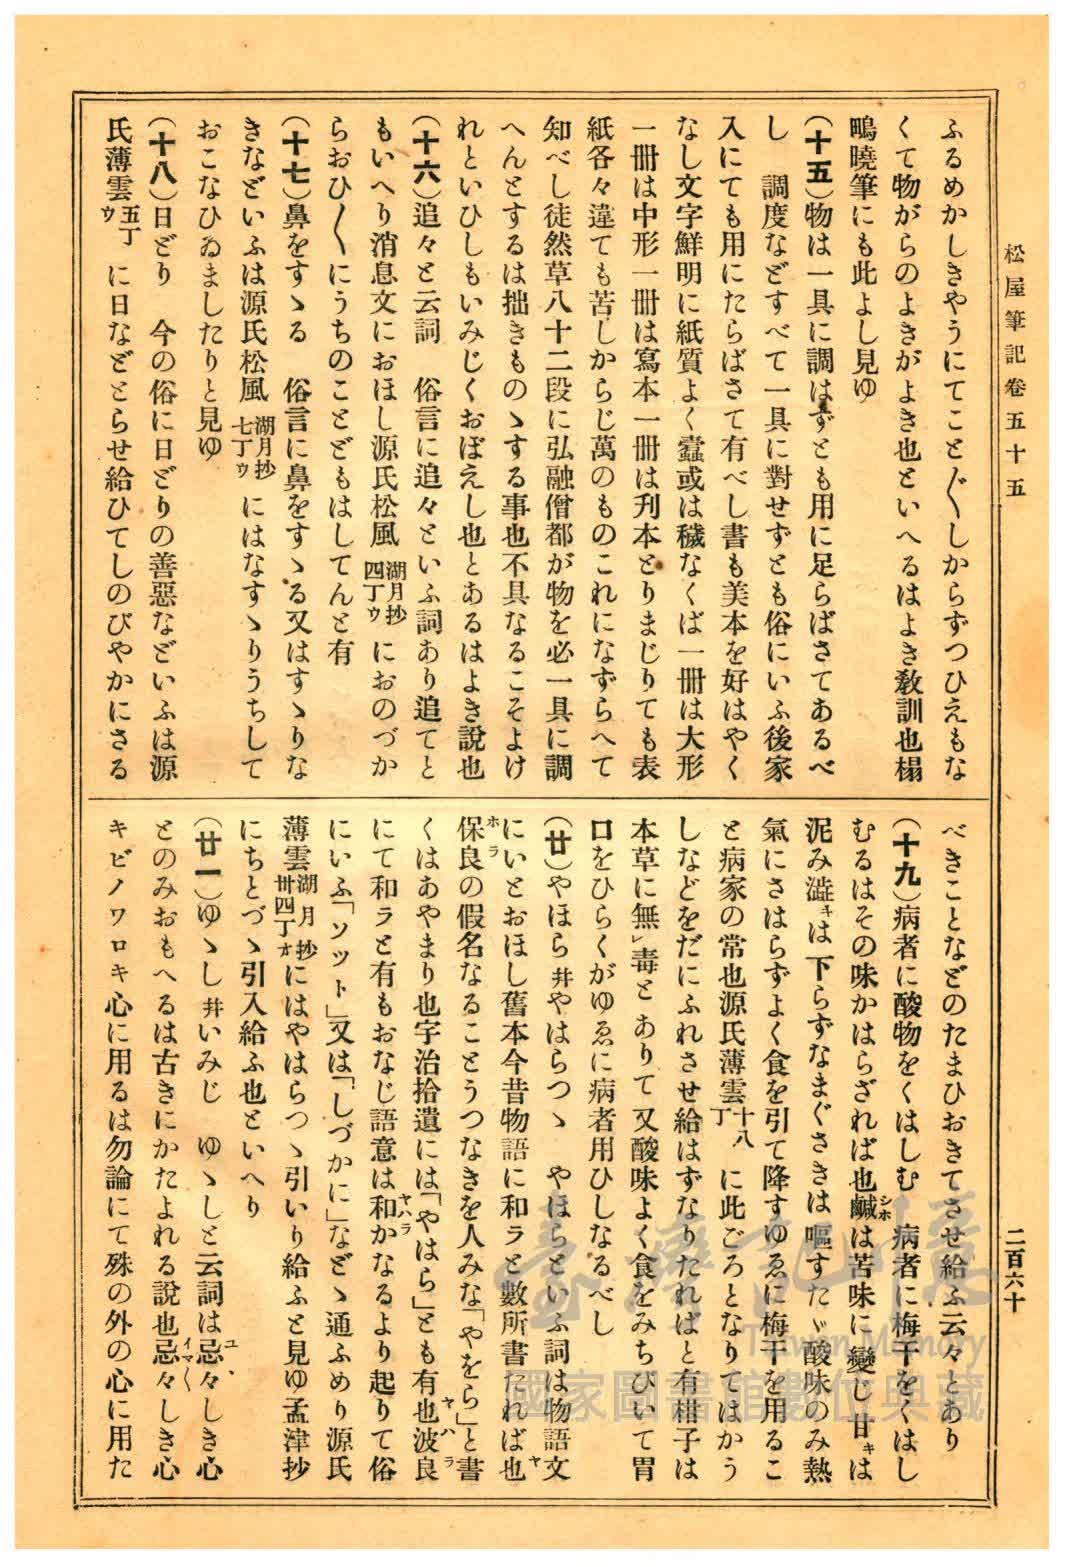 松屋筆記卷五十五
二百六十
ふるめかしきやうにてこと〴〵しからずつひえもな
くて物がらのよきがよき也といへるはよき敎訓也榻
鴫曉筆にも此よし見ゆ
(十五)物は一具に調はずとも用に足らばさてあるべ
し　調度などすべて一具に對せずとも俗にいふ後家
入にても用にたらばさて有べし書も美本を好はやく
なし文字鮮明に紙質よく蠹或は穢なくば一冊は大形
一冊は中形一冊は寫本一冊は刋本とりまじりても表
紙各々違ても苦しからじ萬のものこれになずらへて
知べし徒然草八十二段に弘融僧都が物を必一具に調
へんとするは拙きものゝする事也不具なるこそよけ
れといひしもいみじくおぼえし也とあるはよき說也
(十六)追々と云詞　俗言に追々といふ詞あり追てと
もいへり消息文におほし源氏松風湖月抄四丁ウにおのづか
らおひ〳〵にうちのことどもはしてんと有
(十七)鼻をすゝる　俗言に鼻をすゝる又はすゝりな
きなどいふは源氏松風湖月抄七丁ゥにはなすゝりうちして
おこなひゐましたりと見ゆ
(十八)日どり　今の俗に日どりの善惡などいふは源
氏薄雲五丁ウに日などとらせ給ひてしのびやかにさる
べきことなどのたまひおきてさせ給ふ云々とあり
(十九)病者に酸物をくはしむ　病者に梅干をくはし
むるはその味かはらざれば也鹹シホは苦味に變じ甘キは
泥み澁キは下らずなまぐさきは嘔すたゞ酸味のみ熱
氣にさはらずよく食を引て降すゆゑに梅干を用るこ
と病家の常也源氏薄雲十八丁に此ごろとなりてはかう
しなどをだにふれさせ給はずなりたればと有柑子は
本草に無㆑毒とありて又酸味よく食をみちびいて胃
口をひらくがゆゑに病者用ひしなるべし
(廿)やほら井やはらつゝ　やほらといふ詞は物語文
にいとおほし舊本今昔物語に和ラと數所書たれば也ヤ
保良ホラの假名なることうつなきを人みな「やをら」と書
くはあやまり也宇治拾遺には「やはら」とも有也波良ヤハラ
にて和ラと有もおなじ語意は和ヤハラかなるより起りて俗
にいふ「ソット」又は「しづかに」などゝ通ふめり源氏
薄雲湖月抄卅四丁オにはやはらつゝ引いり給ふと見ゆ孟津抄
にちとづゝ引入給ふ也といへり
(廿一)ゆゝし井いみじ　ゆゝしと云詞は忌ユ々しき心
とのみおもへるは古きにかたよれる說也忌々イマ〳〵しき心
キビノワロキ心に用るは勿論にて殊の外の心に用た
臺灣記憶
Taiwan Memory
國家圖書館數位典藏